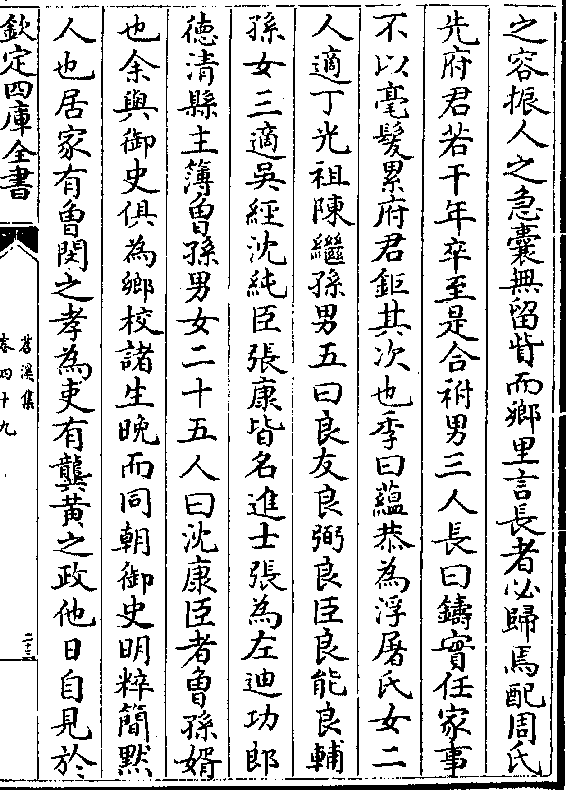 之容振人之急囊無留貲而鄉里言長者必歸焉配周氏
先府君若干年卒至是合祔男三人長曰鑄實任家事
不以毫髮累府君鉅其次也季曰蘊恭為浮屠氏女二
人適丁光祖陳繼孫男五曰良友良弼良臣良能良輔
孫女三適吳經沈純臣張康皆名進士張為左迪功郎
德清縣主簿曾孫男女二十五人曰沈康臣者曾孫婿
也余與御史俱為鄉校諸生晚而同朝御史明粹簡默
人也居家有曾閔之孝為吏有龔黃之政他日自見於
欽定四庫全書
苕溪集
卷四十九
二十三